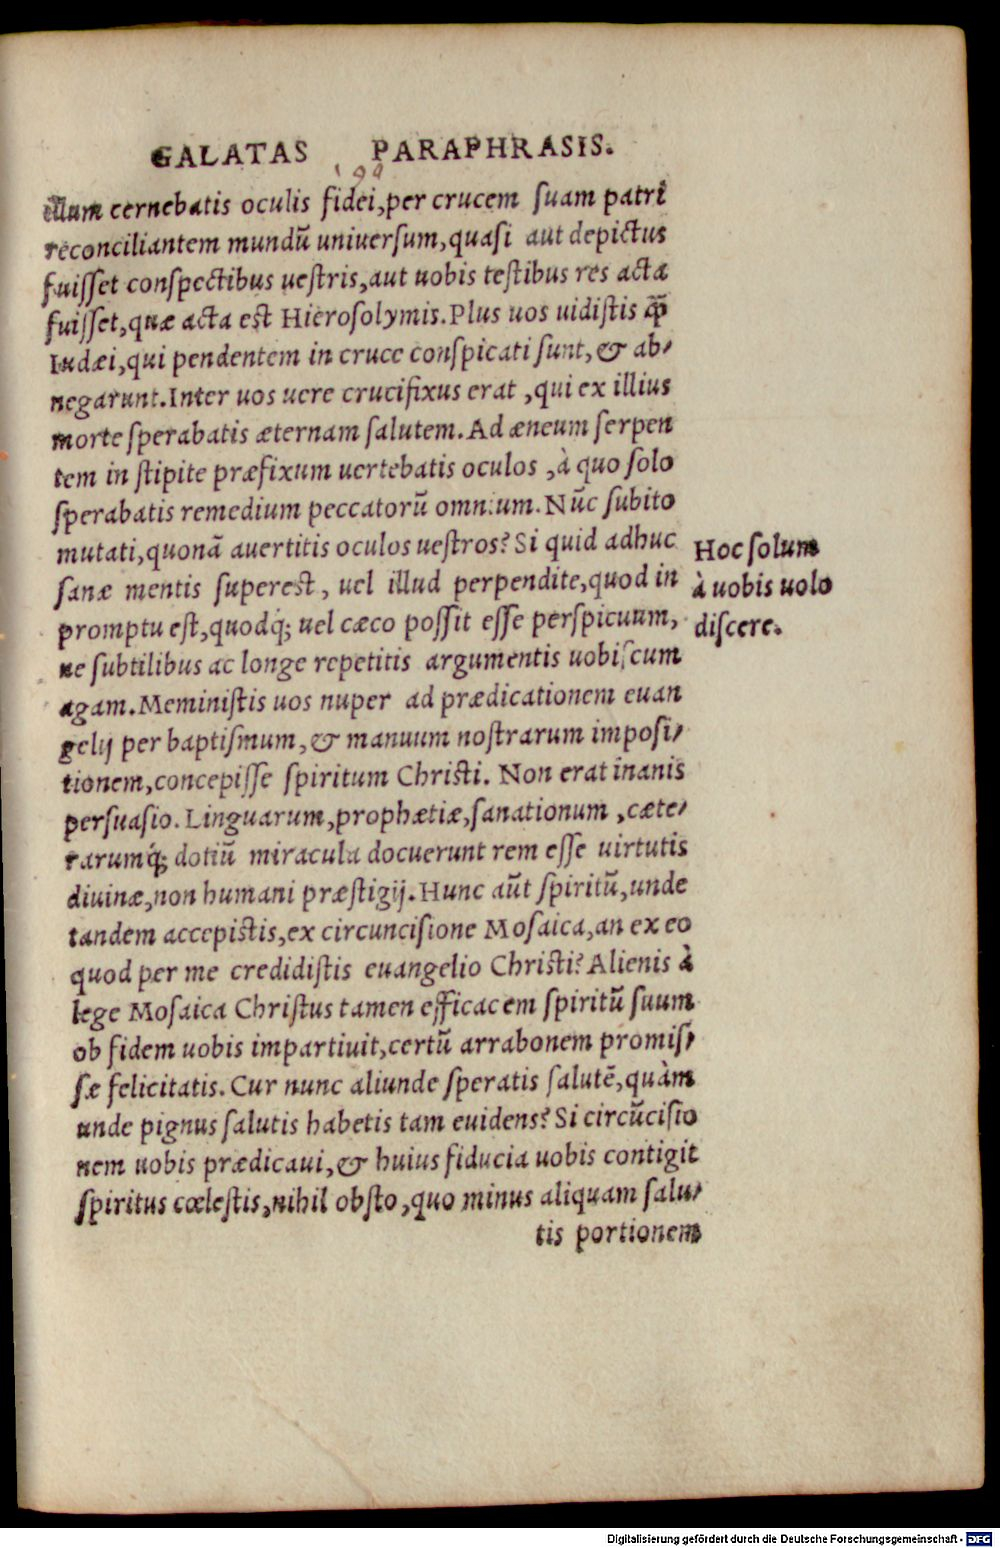 GALATAS PARAPHRASIS.
199
illum cernebatis oculis fidei,per crucem ſuam patri
reconciliantem mundū uniuerſum,quaſi aut depictus
fuiſſet conſpectibus ueſtris,aut uobis teſtibus res acta
fuiſſet,quæ acta est Hieroſolymis.Plus uos uidiſtis q̃
Iudæi,qui pendentem in cruce conſpicati ſunt,& ab-
negarunt.Inter uos uere crucifixus erat ,qui ex illius
morte ſperabatis æternam ſalutem.Ad æneum ſerpen
tem in ſtipite præfixum uertebatis oculos ,à quo ſolo
ſperabatis remedium peccatorū omnium.Nūc ſubito
mutati,quonā auertitis oculos ueſtros?Si quid adhuc
ſanæ mentis ſuperest, uel illud perpendite,quod in
promptu eſt,quodq́; uel cæco poſſit eſſe perſpicuum,
ne ſubtilibus ac longe repetitis argumentis uobiſcum
agam.Meminiſtis uos nuper ad prædicationem euan
gelij per baptiſmum,& manuum noſtrarum impoſi-
tionem,concepiſſe ſpiritum Chriſti. Non erat inanis
perſuaſio.Linguarum,prophætiæ,ſanationum ,cæte-
rarumq́; dotiū miracula docuerunt rem eſſe uirtutis
diuinæ,non humani præſtigij.Hunc aūt ſpiritū,unde
tandem accepiſtis,ex circunciſione Moſaica,an ex eo
quod per me credidiſtis euangelio Chriſti?Alienis à
lege Moſaica Chriſtus tamen efficacem ſpiritū ſuum
ob fidem uobis impartiuit,certū arrabonem promiſ-
ſæ felicitatis.Cur nunc aliunde ſperatis ſalutē,quàm
unde pignus ſalutis habetis tam euidens?Si circūciſio
nem uobis prædicaui,& huius fiducia uobis contigit
ſpiritus cœleſtis,nihil obſto,quo minus aliquam ſalu-
tis portionem
Hoc ſolum
à uobis uolo
diſcere.
Digitalisierung gefördert durch die Deutsche Forschungsgemeinschaft - DFG